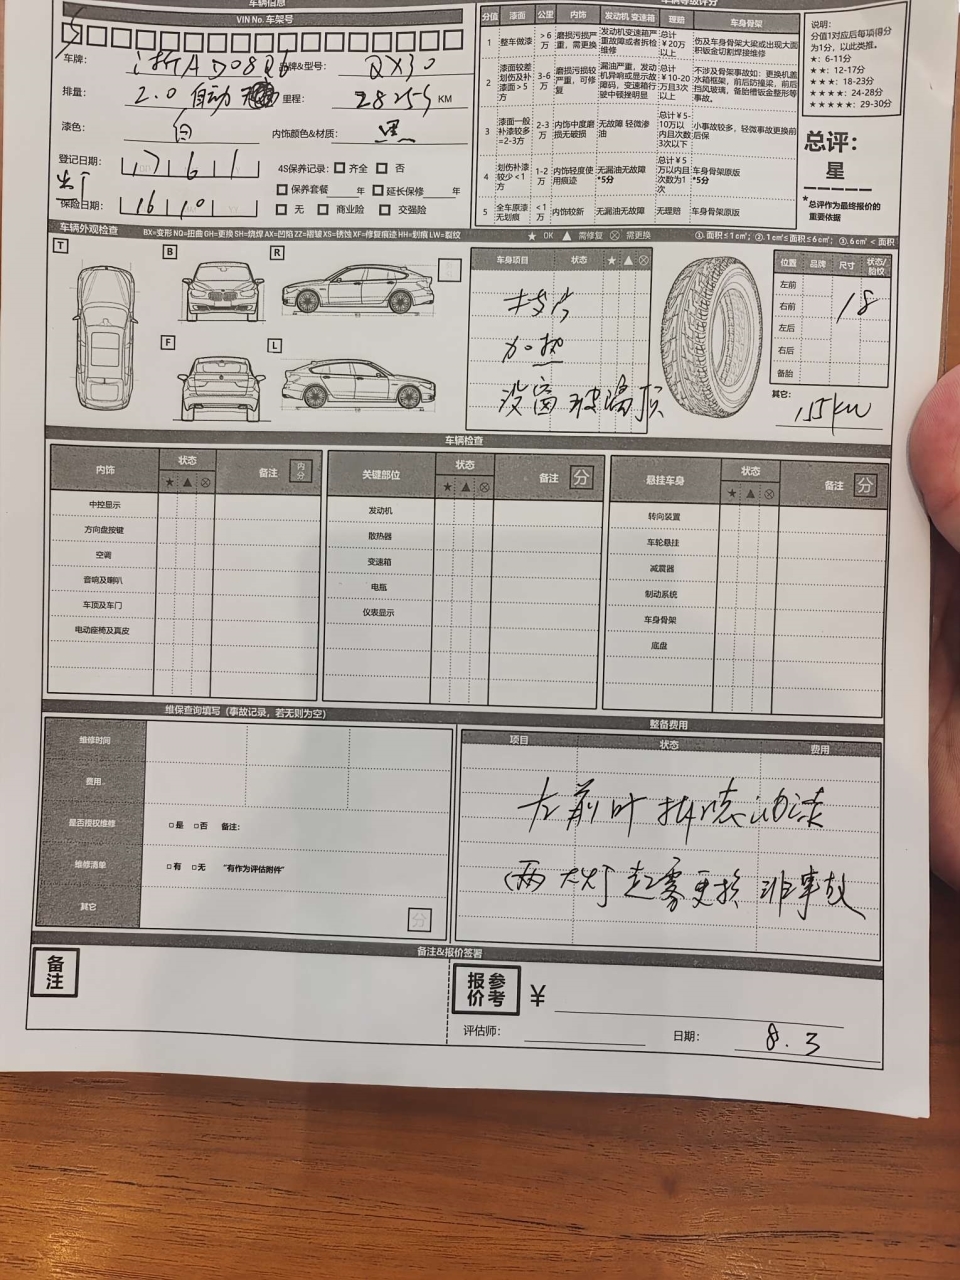 车辆信息
VIN No. 车架号
车牌：
品牌&型号： QX30
排量： 2.0 自动
里程： 28255 KM
漆色： 白
内饰颜色&材质： 黑
登记日期： 17 6 1
4S保养记录： □ 齐全 □ 否
□ 保养套餐 年 □ 延长保修 年
保险日期： 16 10
□ 无 □ 商业险 □ 交强险
车辆等级评分
分值 漆面 公里 内饰 发动机 变速箱 理赔 车身骨架
1 整车做漆 >6万 磨损污损严重，需更换 发动机变速箱严重故障或者拆检维修 总计￥20万以上 伤及车身骨架大梁或出现大面积钣金切割焊接维修
2 漆面较差划伤及补漆面>5方 3-6万 磨损污损较严重，可修复 漏油严重，发动机异响或显示故障码，变速箱行驶中顿挫明显 总计￥10-20万且3次以上 不涉及骨架事故如：更换机盖水箱框架，前后防撞梁，前后挡风玻璃，备胎槽钣金整形等事故。
3 漆面一般补漆较多=2-3方 2-3万 内饰中度磨损无破损 无故障 轻微渗油 总计￥5-10万以内且次数3次以下 小事故较多，轻微事故更换前后保
4 划伤补漆较少<1方 1-2万 内饰轻度使用痕迹 无漏油无故障 *5分 总计￥5万以内且次数为1次 车身骨架原版 *5分
5 全车原漆无划痕 <1万 内饰较新 无漏油无故障 无理赔 车身骨架原版
说明：
分值1对应后每项得分为1分，以此类推。
★：6-11分
★★：12-17分
★★★：18-23分
★★★★：24-28分
★★★★★：29-30分
总评：
星
*总评作为最终报价的重要依据
车辆外观检查 BX=变形 NQ=扭曲 GH=更换 SH=烧焊 AX=凹陷 ZZ=褶皱 XS=锈蚀 XF=修复痕迹 HH=划痕 LW=裂纹 ★ OK ▲ 需修复 ⊗ 需更换 ①. 面积≤1㎝²；②. 1㎝²≤面积≤6㎝²；③. 6㎝²<面积
T
B
R
F
L
车身项目 状态 ★ ▲ ⊗
加热
没窗 玻璃顶
位置 品牌 尺寸 状态/胎纹
左前
右前 18
左后
右后
备胎
其它： 155kw
车辆检查
内饰 状态 ★ ▲ ⊗ 备注 内分
中控显示
方向盘按键
空调
音响及喇叭
车顶及车门
电动座椅及真皮
关键部位 状态 ★ ▲ ⊗ 备注 分
发动机
散热器
变速箱
电瓶
仪表显示
悬挂车身 状态 ★ ▲ ⊗ 备注 分
转向装置
车轮悬挂
减震器
制动系统
车身骨架
底盘
维保查询填写（事故记录，若无则为空）
维修时间
费用
是否授权维修 □是 □否 备注：
维修清单 □有 □无 "有作为评估附件"
其它 分
整备费用
项目 状态 费用
左前叶 拆喷油漆
(两大灯 起雾更换 非事故
备注&报价签署
备注
参考报价 ￥
评估师：
日期： 8.3